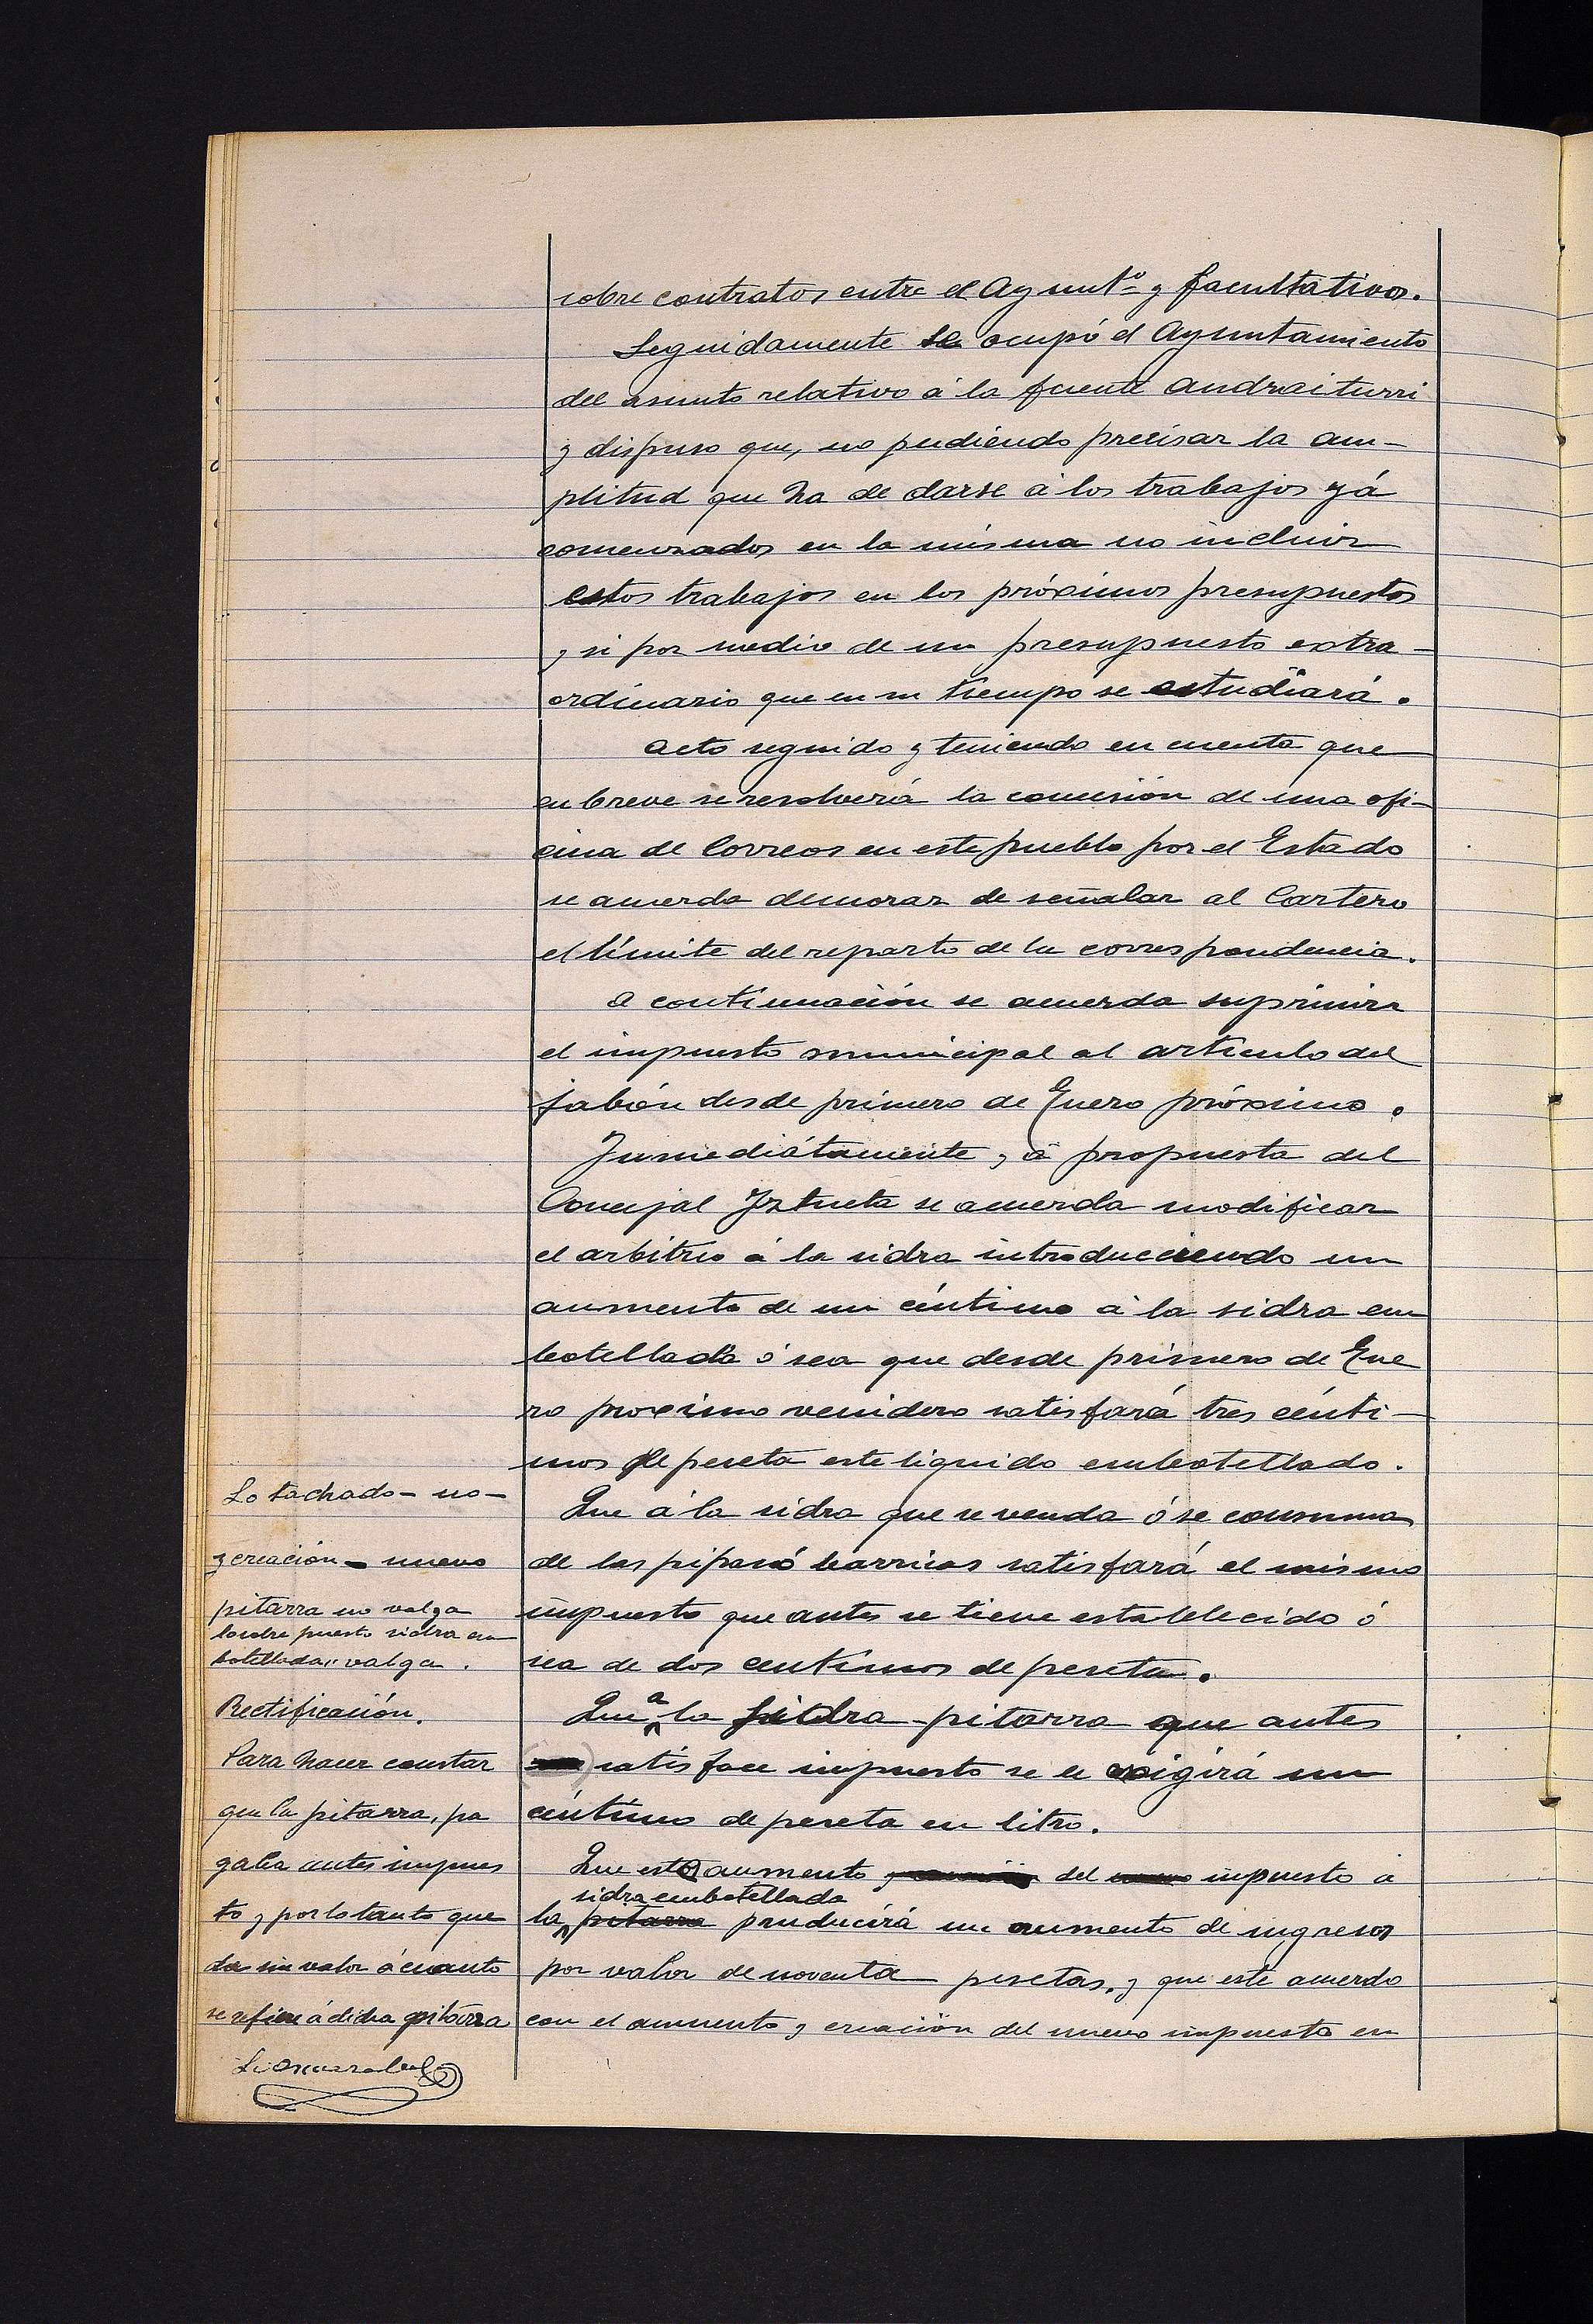 sobre contratos entre el Ayuntº y facultativos.
Seguidamente se ocupó el Ayuntamiento
del asunto relativo á la fuente Andraiturri
y dispuso que, no pudiendo precisar la am-
plitud que ha de darse á los trabajos yá
comenzados en la misma no incluir
estos trabajos en los próximos presupuestos
y si por medio de un presupuesto extra-
ordinario que en su tiempo se estudiará.
Acto seguido y teniendo en cuenta que
en breve se resolverá la concesión de una ofi-
cina de Correos en este pueblo por el Estado
se acuerda demorar de señalar al Cartero
el límite del reparto de la correspondencia.
A continuación se acuerda suprimir
el impuesto municipal al artículo del
jabón desde primero de Enero próximo.
Inmediátamente, á propuesta del
Concejal Iztueta se acuerda modificar
el arbitrio á la sidra introduciendo un
aumento de un céntimo á la sidra em
botellada ó sea que desde primero de Ene
ro proximo venidero satisfará tres cénti-
mos de peseta este liquido embotellado.
Que á la sidra que se venda ó se consuma
de las pipas ó barricas satisfará el mismo
impuesto que antes se tiene establecido ó
sea de dos centimos de peseta.
Que a la sidra-pitarra que antes
satisface impuesto se le exigirá un
céntimo de peseta en litro.
Que esto aumento del impuesto á
sidra embotellada
la pitarra producirá un aumento de ingresos
por valor de noventa pesetas, y que este acuerdo
con el aumento y creación del nuevo impuesto en
Lo tachado- no-
y creación - nuevo
pitarra no valga
sobre puesto sidra em
botellada, valga.
Rectificación.
Para hacer constar
que la pitarra, pa
gaba antes impues
to y por lo tanto que
da sin valor ó cuanto
se refiere á dicha pitarra